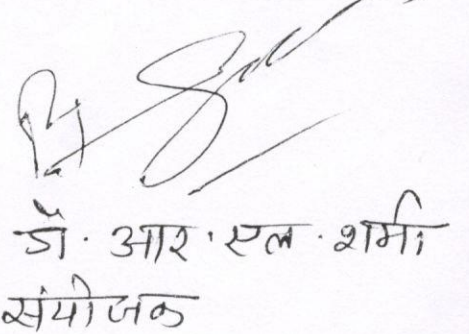 डॉ. आर. एल. शर्मा
संयोजक